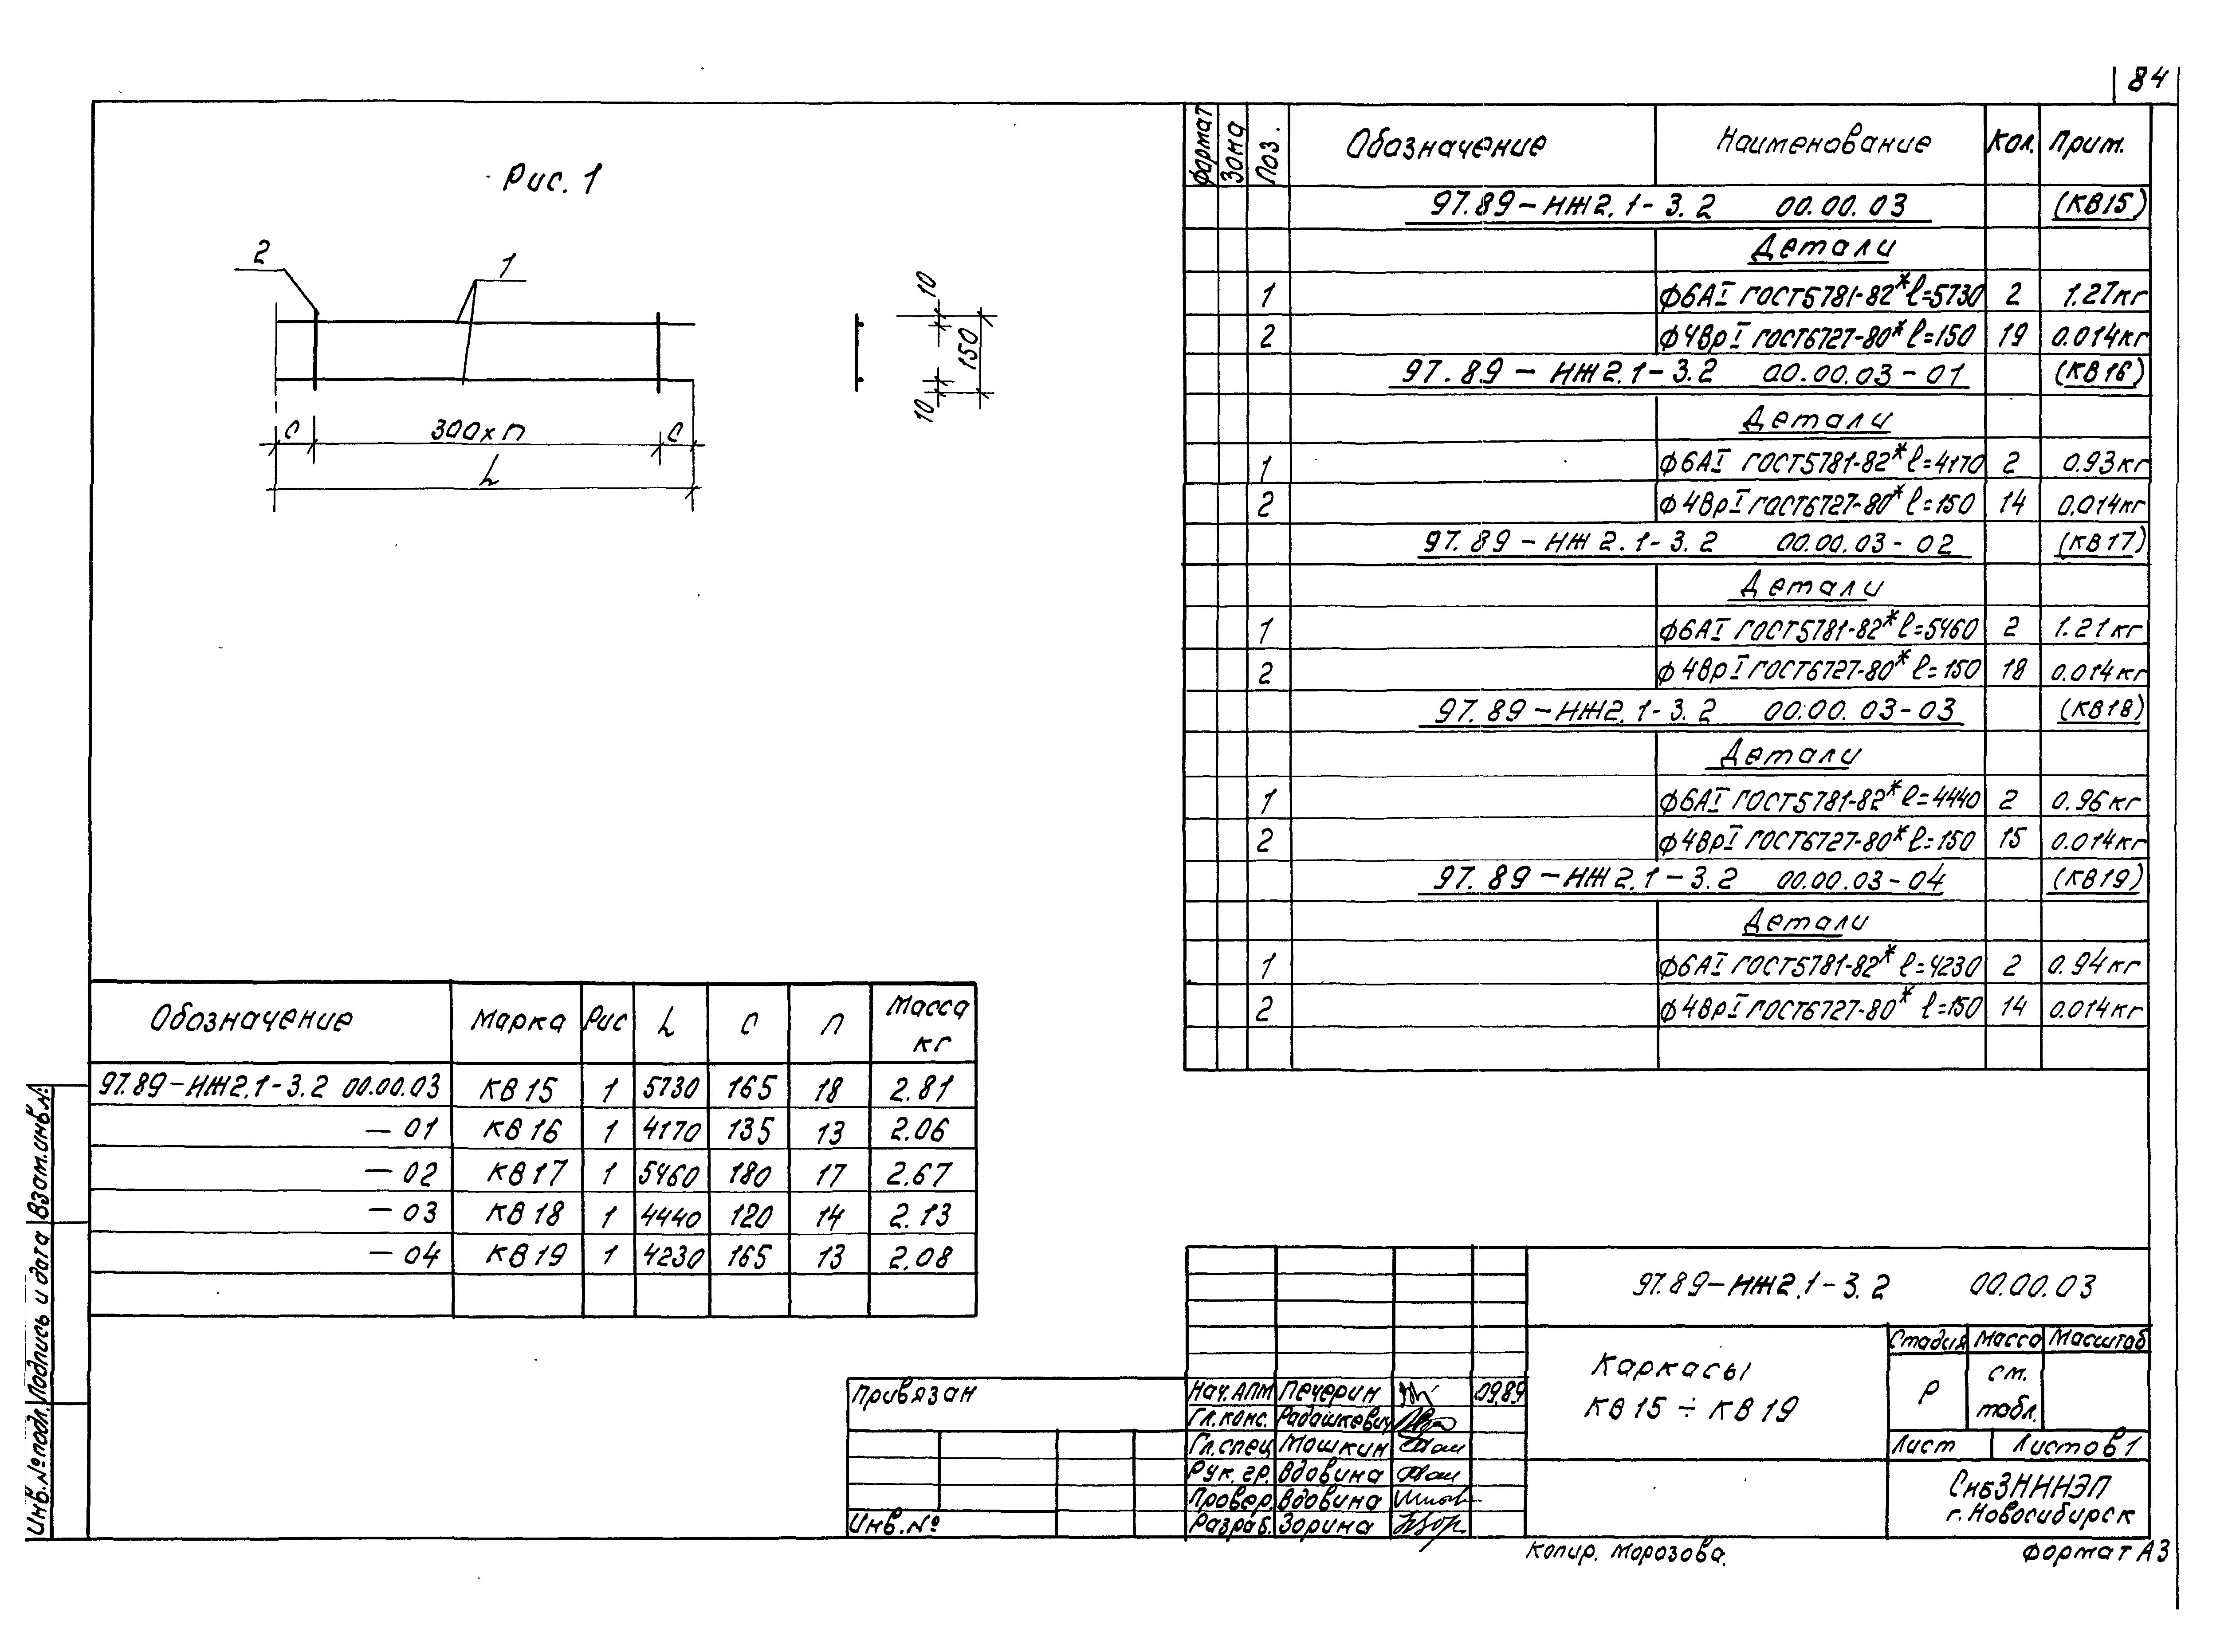 84
Рис. 1
2
1
10
150
10
С
300 х п
С
L
Формат Зона Поз. Обозначение Наименование Кол. Прим.
97.89-НЖ2.1-3.2 00.00.03 (КВ15)
Детали
1 ф6АI ГОСТ5781-82* ℓ=5730 2 1.27кг
2 ф4ВрI ГОСТ6727-80* ℓ=150 19 0.014кг
97.89-НЖ2.1-3.2 00.00.03-01 (КВ16)
Детали
1 ф6АI ГОСТ5781-82* ℓ=4170 2 0.93кг
2 ф4ВрI ГОСТ6727-80* ℓ=150 14 0.014кг
97.89-НЖ2.1-3.2 00.00.03-02 (КВ17)
Детали
1 ф6АI ГОСТ5781-82* ℓ=5460 2 1.21кг
2 ф4ВрI ГОСТ6727-80* ℓ=150 18 0.014кг
97.89-НЖ2.1-3.2 00.00.03-03 (КВ18)
Детали
1 ф6АI ГОСТ5781-82* ℓ=4440 2 0.96кг
2 ф4ВрI ГОСТ6727-80* ℓ=150 15 0.014кг
97.89-НЖ2.1-3.2 00.00.03-04 (КВ19)
Детали
1 ф6АI ГОСТ5781-82* ℓ=4230 2 0.94кг
2 ф4ВрI ГОСТ6727-80* ℓ=150 14 0.014кг
Обозначение Марка Рис L С п Масса кг
97.89-НЖ2.1-3.2 00.00.03 КВ15 1 5730 165 18 2.81
-01 КВ16 1 4170 135 13 2.06
-02 КВ17 1 5460 180 17 2.67
-03 КВ18 1 4440 120 14 2.13
-04 КВ19 1 4230 165 13 2.08
Инв.№подл. Подпись и дата Взам.инв.№
Привязан
Инв.№
Нач.АПМ Печерин 09.89
Гл.конс. Радашкевич
Гл.спец Мошкин
Рук.гр. Вдовина
Провер. Вдовина
Разраб. Зорина
97.89-НЖ2.1-3.2 00.00.03
Каркасы
КВ15 ÷ КВ19
Стадия Масса Масштаб
Р см. табл.
Лист Листов 1
СибЗНИИЭП
г.Новосибирск
Копир. Морозова.
Формат А3